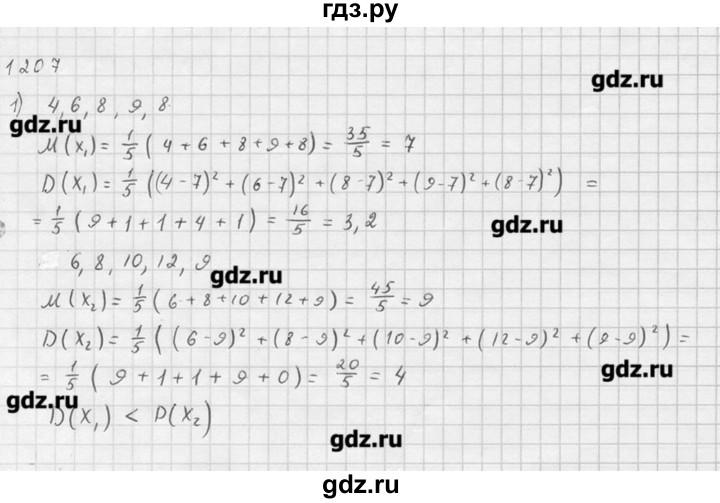 гдз.ру
1207
gdz.ru
1) 4, 6, 8, 9, 8
gdz.ru
M(X₁) = 1/5 (4 + 6 + 8 + 9 + 8) = 35/5 = 7
D(X₁) = 1/5 ((4-7)² + (6-7)² + (8-7)² + (9-7)² + (8-7)²) =
= 1/5 (9 + 1 + 1 + 4 + 1) = 16/5 = 3,2
gdz.ru
6, 8, 10, 12, 9
gdz.ru
M(X₂) = 1/5 (6 + 8 + 10 + 12 + 9) = 45/5 = 9
D(X₂) = 1/5 ((6-9)² + (8-9)² + (10-9)² + (12-9)² + (9-9)²) =
= 1/5 (9 + 1 + 1 + 9 + 0) = 20/5 = 4
gdz.ru
gdz.ru
D(X₁) < D(X₂)
gdz.ru
gdz.ru